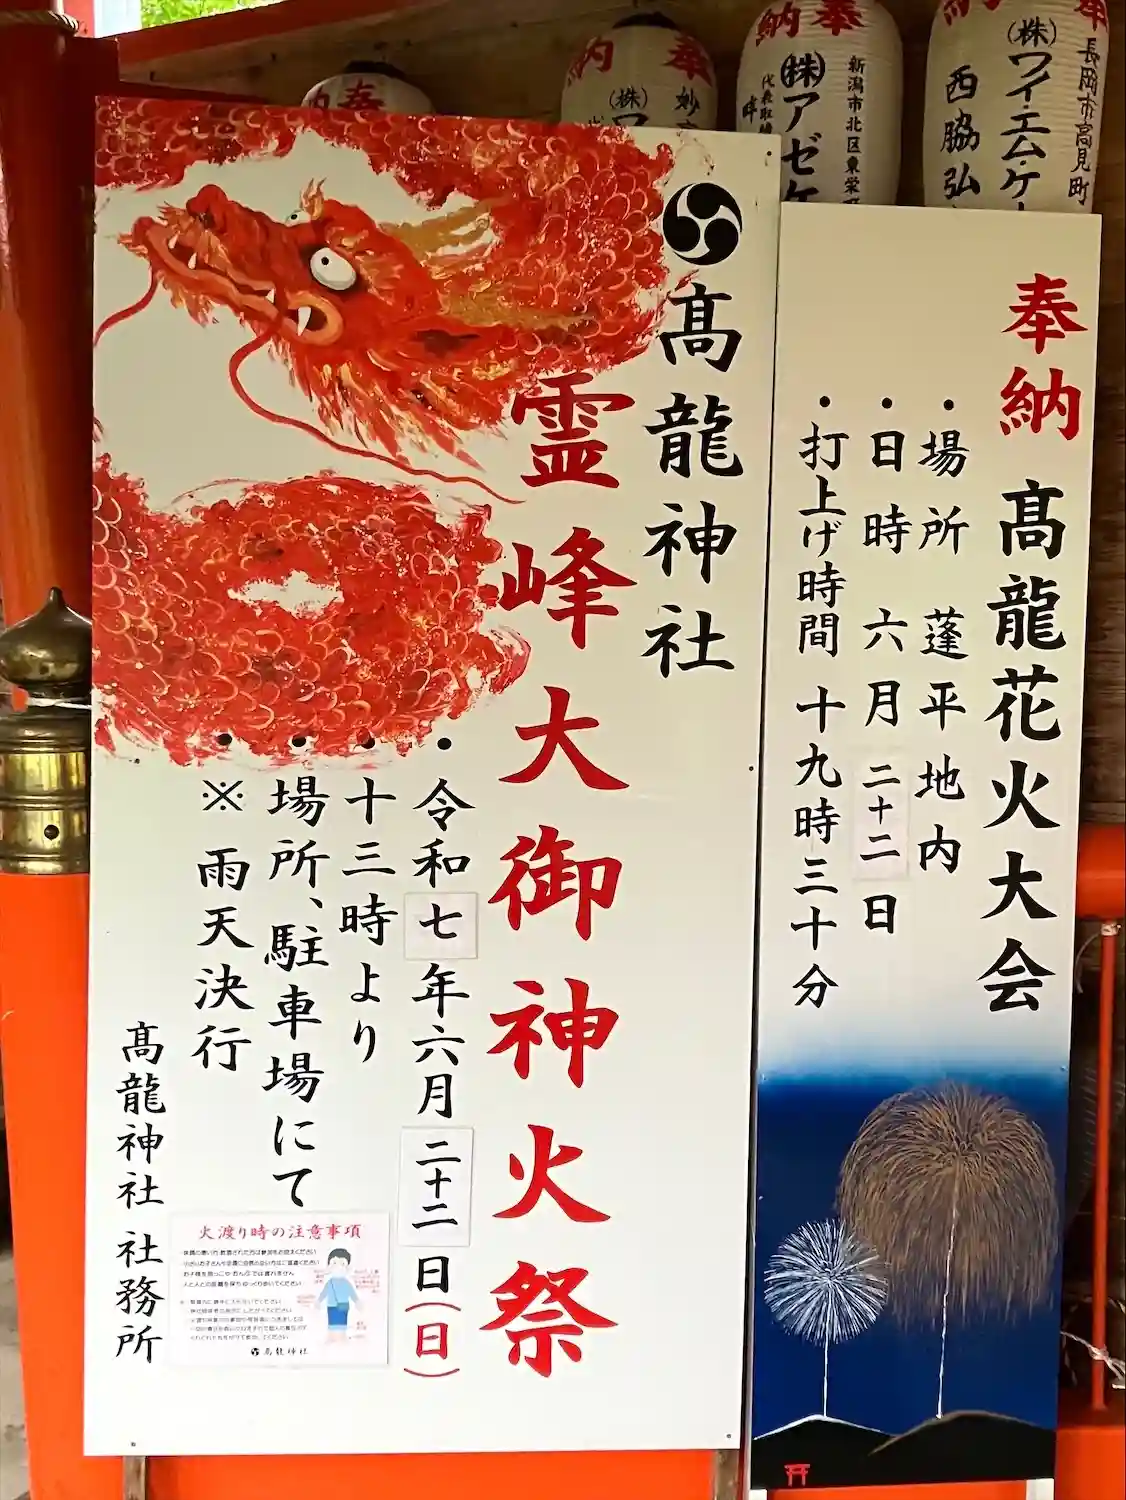 奉納
奉納
長岡市高見町
(株)ワイエム・ケ
西脇弘
奉納
新潟市北区東栄
(株)アゼ
代表取締
奉納
妙
(株)
奉納
奉納 髙龍花火大会
・場所 蓬平地内
・日時 六月二十二日
・打上げ時間 十九時三十分
髙龍神社
霊峰大御神火祭
・令和七年六月二十二日(日)
・十三時より
・場所、駐車場にて
・※雨天決行
髙龍神社 社務所
火渡り時の注意事項
髙龍神社